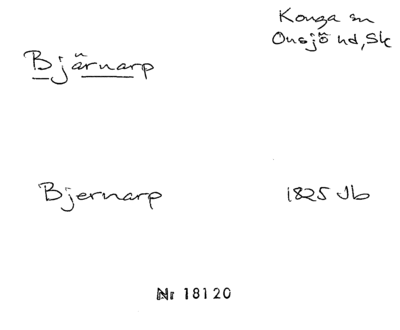 Konga sn
Onsjö hd, Sk
Bjärnarp
Bjernarp
1825 Jb
Nr 18120